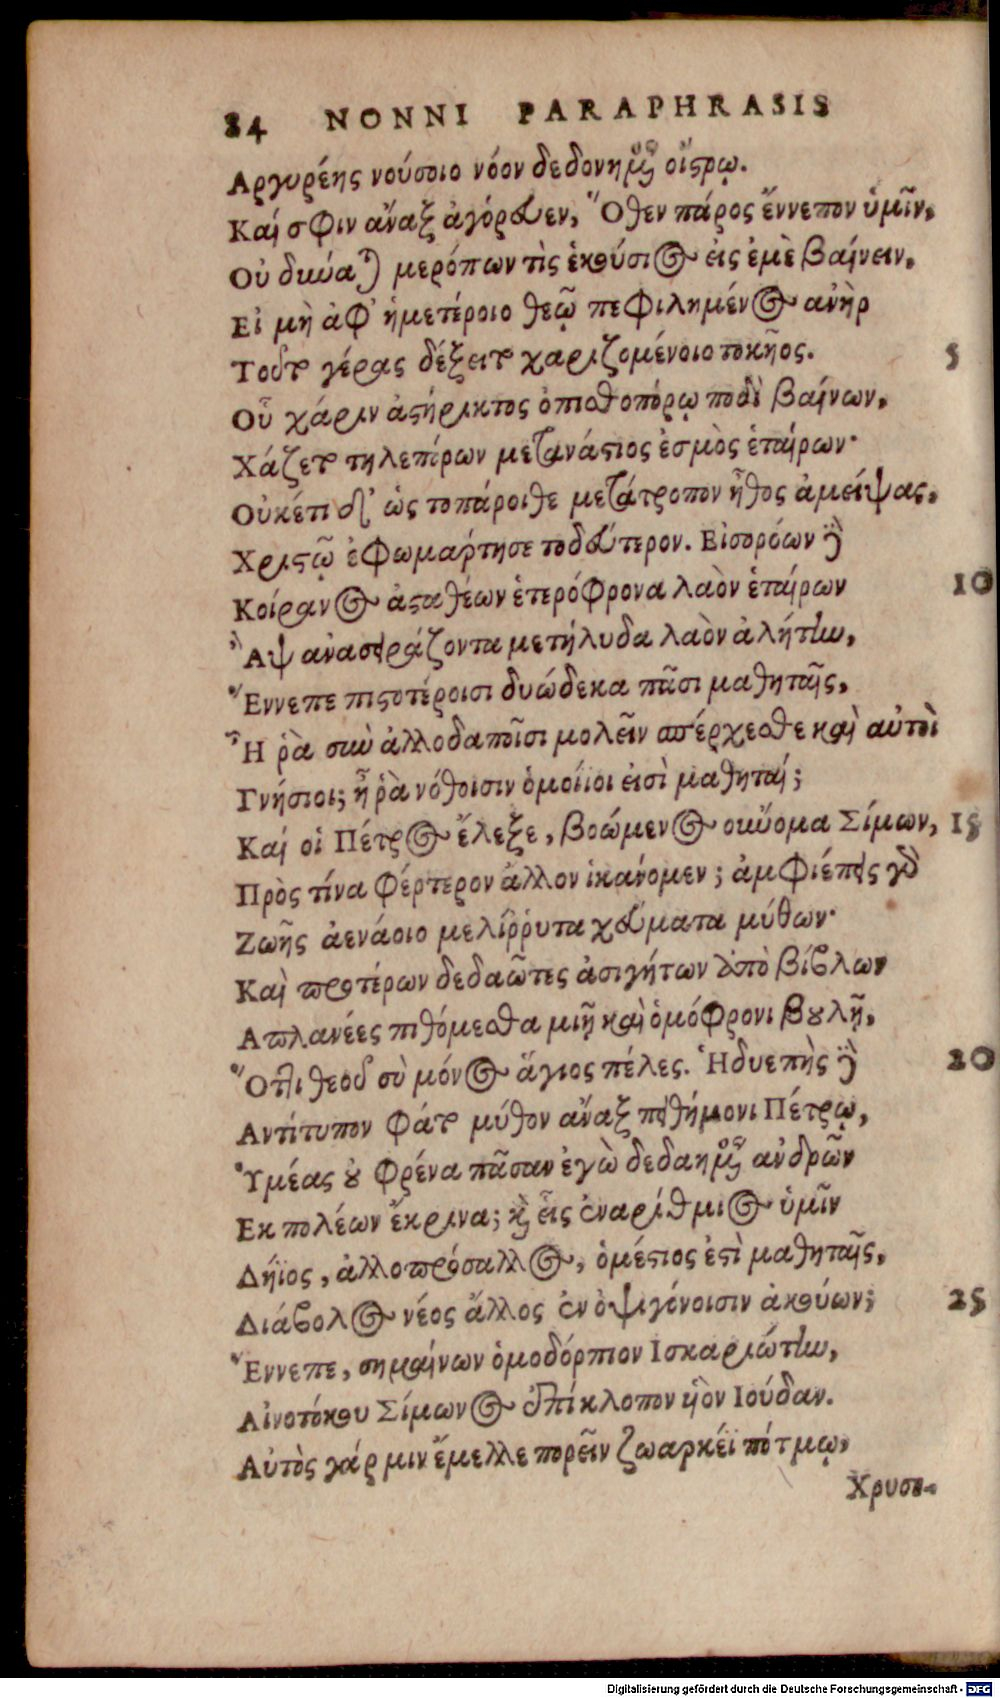 84 NONNI PARAPHRASIS
Αργυρέης νούσοιο νόον δεδονημένος οἴστρῳ.
Καί σφιν ἄναξ ἀγόρευεν, Ὅθεν πάρος ἔννεπον ὑμῖν,
Οὐ δύναται μερόπων τὶς ἑκούσιος εἰς ἐμὲ βαίνειν,
Εἰ μὴ ἀφ' ἡμετέροιο θεῷ πεφιλημένος ἀνὴρ
Τοῦτο γέρας δέξειτο χαριζομένοιο τοκῆος. 5
Οὗ χάριν ἀστήρικτος ὀπισθοπόρῳ ποδὶ βαίνων,
Χάζετο τηλεπόρων μετανάστιος ἑσμὸς ἑταίρων·
Οὐκέτι δ' ὡς τοπάροιθε μετάτροπον ἦθος ἀμείψας,
Χριστῷ ἐφωμάρτησε τοδεύτερον. Εἰσορόων δὲ
Κοίρανος ἀσταθέων ἑτερόφρονα λαὸν ἑταίρων 10
Ἂψ ἀναστείχοντα μετήλυδα λαὸν ἀλήτην,
Ἔννεπε πιστοτέροισι δυώδεκα πᾶσι μαθηταῖς,
Ἦ ῥὰ σὺν ἀλλοδαποῖσι μολεῖν σπέρχεσθε καὶ αὐτοὶ
Γνήσιοι; ἦ ῥὰ νόθοισιν ὁμοίιοι εἰσὶ μαθηταί;
Καί οἱ Πέτρος ἔλεξε, βοώμενος οὔνομα Σίμων, 15
Πρὸς τίνα φέρτερον ἄλλον ἱκάνομεν; ἀμφιέπεις γὰρ
Ζωῆς ἀενάοιο μελίῤῥυτα χεύματα μύθων·
Καὶ προτέρων δεδαῶτες ἀσιγήτων ἀπὸ βίβλων
Απλανέες πιθόμεσθα μιῇ καὶ ὁμόφρονι βουλῇ,
Ὅττι θεοῦ σὺ μόνος ἅγιος πέλες. Ἡδυεπὴς δὲ 20
Αντίτυπον φάτο μύθον ἄναξ πειθήμονι Πέτρῳ,
Ὑμέας οὐ φρένα πᾶσαν ἐγὼ δεδαημένος ἀνδρῶν
Εκ πολέων ἔκρινα; καὶ εἷς ἐναρίθμιος ὑμῖν
Δήϊος, ἀλλοπρόσαλλος, ὁμέστιος ἐστὶ μαθηταῖς,
Διάβολος νέος ἄλλος ἐν ὀψιγόνοισιν ἀκούων; 25
Ἔννεπε, σημαίνων ὁμοδόρπιον Ισκαριώτην,
Αἰνοτόκου Σίμωνος ἐπίκλοπον υἱὸν Ιούδαν.
Αὐτὸς γάρ μιν ἔμελλε πορεῖν ζωαρκέϊ πότμῳ,
Χρυσο-
Digitalisierung gefördert durch die Deutsche Forschungsgemeinschaft - DFG